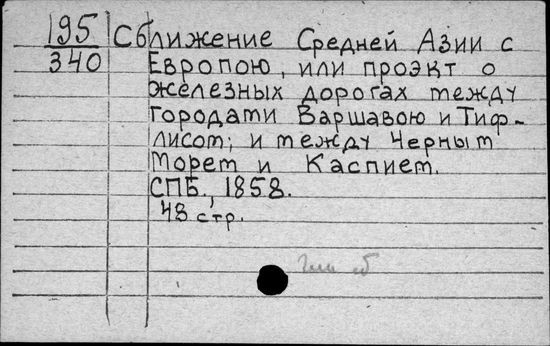 195
340
Сближение Средней Азии с
Европою, или проэкт о
железных дорогах между
городами Варшавою и Тиф-
лисом; и между Черным
морем и Каспием.
СПБ., 1858.
48 стр.